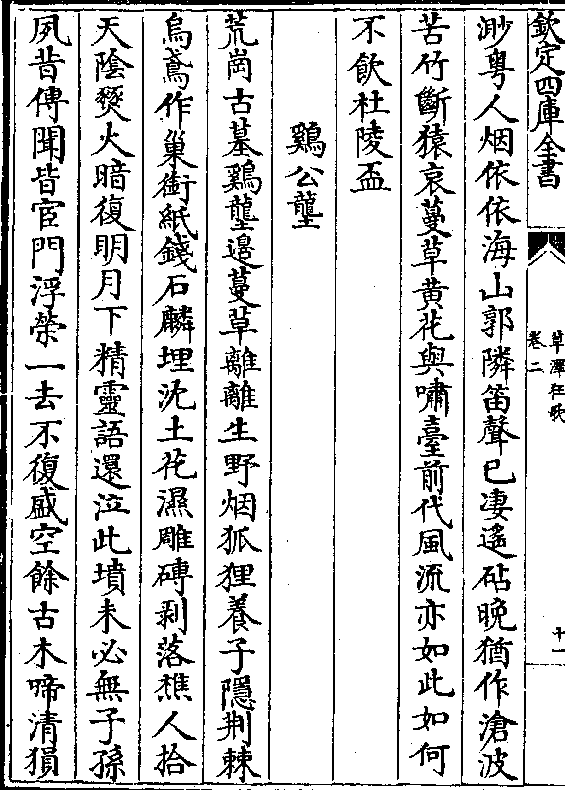 欽定四庫全書
草澤狂歌
卷二
十一
渺粤人烟依依海山郭隣笛聲已凄遙砧晚猶作滄波
苦竹斷猿哀蔓草黄花與嘯臺前代風流亦如此如何
不飲杜陵盃
鷄公壟
荒崗古墓鷄壟邊蔓草離離生野烟狐狸養子隱荆棘
烏鳶作巢銜紙錢石麟埋沈土花濕雕磚剥落樵人拾
天陰燹火暗復明月下精靈語還泣此墳未必無子孫
夙昔傳聞皆宦門浮榮一去不復盛空餘古木啼清猿